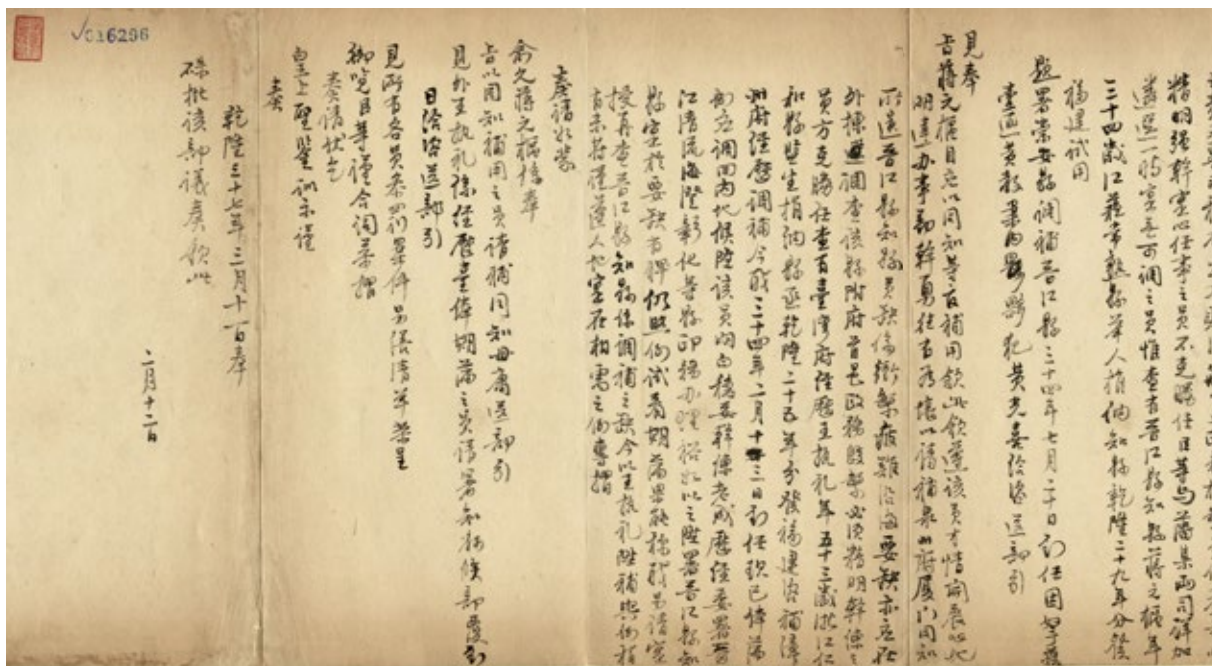 精明强幹實心任事之員不克勝任臣等與藩臬兩司詳加
遴選一時實無可調之員惟查有晉江縣知縣蔣之棡年
三十四歲江蘇常熟縣舉人捐納知縣乾隆二十九年分發
福建試用
題署崇安縣調補晉江縣三十四年七月二十日到任因拏獲
臺匪黃教案內夥犯黃光喜給咨送部引
見奉
旨蔣之棡着以同知等官補用欽此欽遵該員才情開展心地
明達辦事勤幹勇往有為堪以請補泉州府厦門同知
所遺晉江縣知縣員缺係衝繁疲難沿海要缺亦應在
外揀選調查該縣附府首邑政務殷繁必須精明幹練之
員方克勝任查有臺灣府經歷王執礼年五十三歲浙江仁
和縣監生捐納縣丞乾隆二十五年分發福建咨補漳
州府經歷調補今職三十四年二月十三日到任現已俸滿
例應調回內地候陞該員明白穩妥幹練老成歷經委署晉
江清流海澄彰化等縣印務办理裕如以之陞署晉江縣知
縣實於要缺有裨仍照例試看期滿果能稱職另請實
授再查晉江縣知縣係調補之缺今以王執礼陞補與例稍
有未符謹遵人地實在相需之例專摺
奏請
俞允蔣之棡係奉
旨以同知補用之員請補同知毋庸送部引
見外王執礼係經歷臺俸期滿之員請署知縣候部覆到
日給咨送部引
見所有各員參罰案件另繕清單恭呈
御覽臣等謹合詞恭摺
奏請伏乞
皇上聖鑒訓示謹
奏
乾隆三十七年三月十一日奉
硃批該部議奏欽此
二月十二日
016296